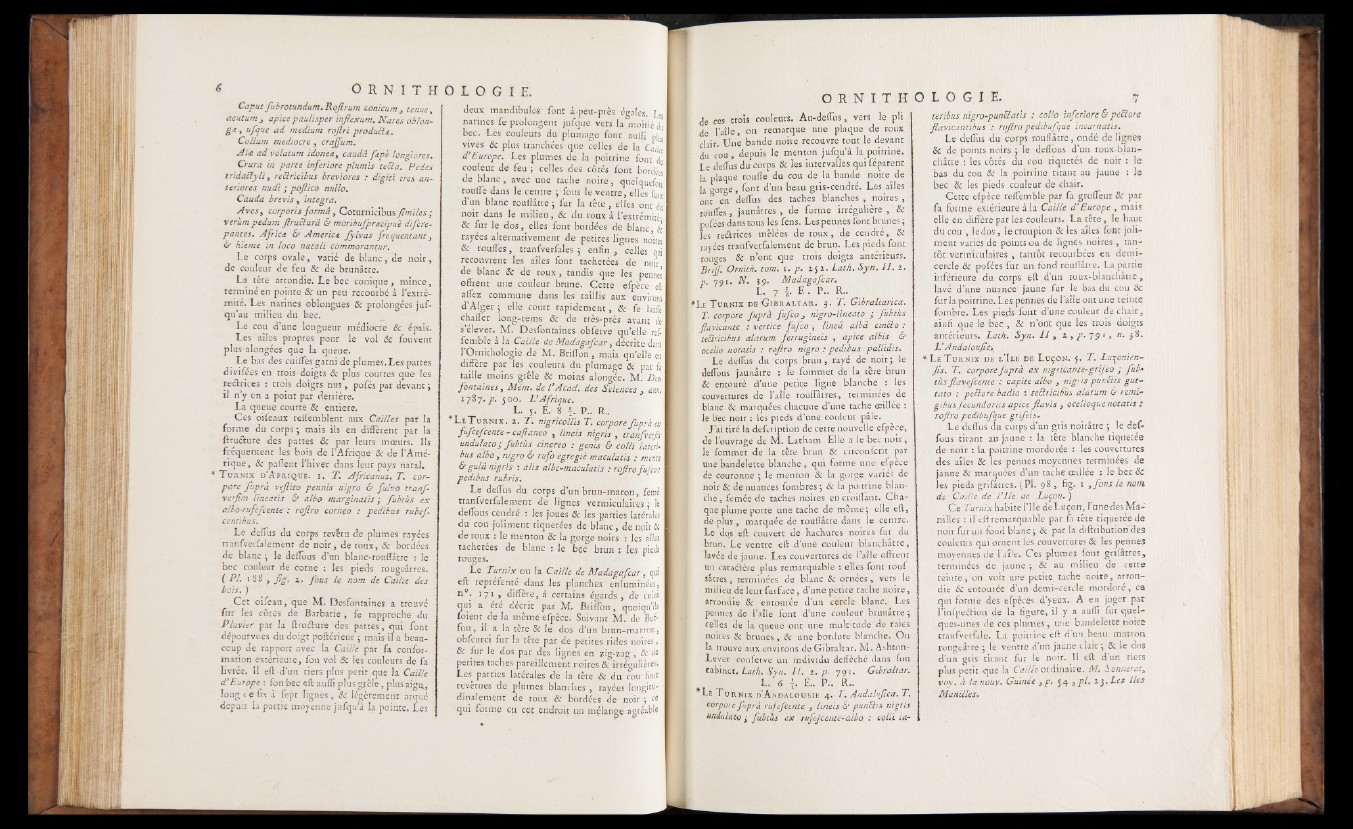 6 ORNITHOLOGIE.
Caput subrotundum. Rostrum conicum, tenue,
acutum, apice paulisper inflexum. Nares oblon-
gæ, usque ad medium rostri productæ.
Collum mediocre, crassum.
Alæ ad volatum idonea, caudâ sæpè longiores.
Crura in parte inferiore plumis tecta. Pedes
tridactyli, rectricibus breviores : digiti tres an-
teriores nudi ; postico nullo.
Cauda brevis, integra.
Aves, corporis formâ, Coturnicibus similes ;
verùm pedum structurâ & moribus præcipuè discre-
pantes. Africæ & Americæ sylvas frequentant,
& hieme in loco natali commorantur.
Le corps ovale, varié de blanc, de noir,
de couleur de feu & de brunâtre.
La tête arrondie. Le bec conique, mince,
terminé en pointe & un peu recourbé à l'extré-
mité. Les narines oblongues & prolongées jus-
qu'au milieu du bec.
Le cou d'une longueur médiocre & épais.
Les aîles propres pour le vol & souvent
plus alongées que la queue.
Le bas des cuisses garni de plumes. Les pattes
divisées en trois doigts & plus courtes que les
rectrices : trois doigts nus, posés par devant ;
il n'y en a point par derrière.
La queue courte & entiere.
Ces oiseaux ressemblent aux Cailles par la
forme du corps ; mais ils en diffèrent par la
structure des pattes & par leurs mœurs. Ils
fréquentent les bois de l'Afrique & de l'Amé-
rique, & passent l'hiver dans leur pays natal.
* TURNIX D'AFRIQUE. 1. T. Africanus. T. cor-
pore suprà vestito pennis nigro & fulvo trans-
versim linearis & albo marginatis ; subtùs ex
albo-rufescente : rostro corneo : pedibus rubes-
centibus.
Le dessus du corps revêtu de plumes rayées
transversalement de noir, de roux, & bordées
de blanc ; le dessous d'un blanc-roussâtre : le
bec couleur de corne : les pieds rougeâtres.
( Pl. 188, fig. 2. sous le nom de Caille des
bois. )
Cet oiseau, que M. Desfontaines a trouvé
sur les côtes de Barbarie, se rapproche du
Pluvier par la structure des pattes, qui sont
dépourvues du doigt postérieur ; mais il a beau-
coup de rapport avec la Caille par sa confor-
mation extérieure, son vol & les couleurs de sa
livrée. Il est d'un tiers plus petit que la Caille
d'Europe : son bec est aussi plus grêle, plus aigu,
long de six à sept lignes, & légèrement arqué
depuis la partie moyenne jusqu'à la pointe. Les
deux mandibules sont à-peu-près égales. Les
narines se prolongent jusque vers la moitié du
bec. Les couleurs du plumage sont aussi plus
vives & plus tranchées que celles de la Caille
d'Europe. Les plumes de la poitrine sont de
couleur de feu ; celles des côtés sont bordées
de blanc, avec une tache noire, quelquefois
rousse dans le centre ; sous le ventre, elles sont
d'un blanc roussâtre ; sur la tête, elles ont du
noir dans le milieu, & du roux à l'extrémité,
& sur le dos, elles sont bordées de blanc, &
rayées alternativement de petites lignes noires
& rousses, transversales ; enfin, celles qui
recouvrent les aîles sont tachetées de noir,
de blanc & de roux, tandis que les pennes
offrent une couleur brune. Cette espèce est
assez commune dans les taillis aux environs
d'Alger ; elle court rapidement, & se laisse
chasser long-tems & de très-près avant de
s'élever. M. Desfontaines observe qu'elle res-
semble à la Caille de Madagascar, décrite dans
l'Ornithologie de M. Brisson, mais qu'elle en
diffère par les couleurs du plumage & par sa
taille moins grêle & moins alongée. M. Des-
fontaines, Mém. de l'Acad. des Sciences, ann.
1787. p. 500. L'Afrique.
L. 5. E. 8 ½. P.. R..
* LE TURNIX. 2. T. nigricollis T. corpore suprà ex
fuscescente-castaneo, lineis nigris, transversis
undulato ; subtùs cinereo : genis & colli lateri-
bus albo, nigro & rufo egregiè maculatis : mento
& gulâ nigris : alis albo-maculatis : rostro fusco :
pedibus rubris.
Le dessus du corps d'un brun-maron, semé
transversalement de lignes vermiculaires ; le
dessous cendré : les joues & les parties latérales
du cou joliment tiquetées de blanc, de noir &
de roux : le menton & la gorge noirs : les aîles
tachetées de blanc : le bec brun : les pieds
rouges.
Le Turnix ou la Caille de Madagascar, qui
est représenté dans les planches enluminées,
n°. 171, diffère, à certains égards, de celui
qui a été décrit par M. Brisson, quoiqu'ils
soient de la même espèce. Suivant M. de Buf-
fon, il a la tête & le dos d'un brun-marron,
obscurci sur la tête par de petites rides noires,
& sur le dos par des lignes en zig-zag, & de
petites taches pareillement noires & irrégulières.
Les parties latérales de la tête & du cou sont
revêtues de plumes blanches, rayées longitu-
dinalement de roux & bordées de noir ; ce
qui forme en cet endroit un mélange agréable
ORNITHOLOGIE. 7
de ces trois couleurs. Au-dessus, vers le pli
de l'aîle, on remarque une plaque de roux
clair. Une bande noire recouvre tout le devant
du cou, depuis le menton jusqu'à la poitrine.
Le dessus du corps & les intervalles qui séparent
la plaque rousse du cou de la bande noire de
la gorge, sont d'un beau gris-cendré. Les aîles
ont en dessus des taches blanches, noires,
rousses, jaunâtres, de forme irrégulière, &
posées dans tous les sens. Les pennes sont brunes ;
les rectrices mêlées de roux, de cendré, &
rayées transversalement de brun. Les pieds sont
rouges & n'ont que trois doigts antérieurs.
Briss. Ornith. tom. 1. p. 252. Lath. Syn. II. 2.
p. 791. N. 39. Madagascar.
L. 7 ½. E. P.. R..
* LE TURNIX DE GIBRALTAR. 3. T. Gibraltarica.
T. corpore suprà fusco, nigro-lineato ; subtùs
flavicante : vertice fusco, lineâ albâ cincto :
tectricibus alarum ferrugineis, apice albis &
ocello notatis : rostro nigro : pedibus pallidis.
Le dessus du corps brun, rayé de noir ; le
dessous jaunâtre : le sommet de la tête brun
& entouré d'une petite ligne blanche : les
couvertures de l'aîle roussâtres, terminées de
blanc & marquées chacune d'une tache œillée :
le bec noir : les pieds d'une couleur pâle.
J'ai tiré la description de cette nouvelle espèce,
de l'ouvrage de M. Latham. Elle a le bec noir,
le sommet de la tête brun & circonscrit par
une bandelette blanche, qui forme une espèce
de couronne ; le menton & la gorge variés de
noir & de nuances sombres ; & la poitrine blan-
che, semée de taches noires en croissant. Cha-
que plume porte une tache de même ; elle est,
de plus, marquée de roussâtre dans le centre.
Le dos est couvert de hachures noires sur du
brun. Le ventre est d'une couleur blanchâtre,
lavée de jaune. Les couvertures de l'aîle offrent
un caractère plus remarquable : elles sont rous-
sâtres, terminées de blanc & ornées, vers le
milieu de leur surface, d'une petite tache noire,
arrondie & entourée d'un cercle blanc. Les
pennes de l'aîle sont d'une couleur brunâtre ;
celles de la queue ont une multitude de raies
noires & brunes, & une bordure blanche. On
la trouve aux environs de Gibraltar. M. Ashton-
Lever conserve un individu desséché dans son
cabinet. Lath. Syn. II. 2. p. 791. Gibraltar.
L. 6 ½. E.. P.. R..
* LE TURNIX D'ANDALOUSIE 4. T. Andalusica. T.
corpore suprà rufescente, lineis & punctis nigris
undulato ; subtùs ex rufescente-albo : colli la-
teribus nigro-punctatis : collo inferiore & pectore
flavicantibus : rostro pedibusque incarnatis.
Le dessus du corps roussâtre, ondé de lignes
& de points noirs ; le dessous d'un roux-blan-
châtre : les côtés du cou tiquetés de noir : le
bas du cou & la poitrine tirant au jaune : le
bec & les pieds couleur de chair.
Cette espèce ressemble par sa grosseur & par
sa forme extérieure à la Caille d'Europe, mais
elle en diffère par les couleurs. La tête, le haut
du cou, le dos, le croupion & les aîles sont joli-
ment variés de points ou de lignes noires, tan-
tôt vermiculaires, tantôt recourbées en demi-
cercle & posées sur un fond roussâtre. La partie
inférieure du corps est d'un roux-blanchâtre,
lavé d'une nuance jaune sur le bas du cou &
sur la poitrine. Les pennes de l'aîle ont une teinte
sombre. Les pieds sont d'une couleur de chair,
ainsi que le bec, & n'ont que les trois doigts
antérieurs. Lath. Syn. II, 2, p. 791, n. 38.
L'Andalousie.
* LE TURNIX DE L'ILE DE LUÇON. 5. T. Luzonien-
sis. T. corpore suprà ex nigricante-griseo ; sub-
tùs flavescente : capite albo, nigris punctis gut-
tato : pectore badio : tectricibus alarum & remi-
gibus secundariis apice flavis, ocelloque notatis :
rostro pedibusque griseis.
Le dessus du corps d'un gris noirâtre ; le des-
sous tirant au jaune : la tête blanche tiquetée
de noir : la poitrine mordurée : les couvertures
des aîles & les pennes moyennes terminées de
jaune & marquées d'un tache œillée : le bec &
les pieds grisâtres. ( Pl. 98, fig. 1, sous le nom
de Caille de l'Ile de Luçon. )
Ce Turnix habite l'Ile de Luçon, l'une des Ma-
nilles : il est remarquable par sa tête tiquetée de
noir sur un fond blanc ; & par la distribution des
couleurs qui ornent les couvertures & les pennes
moyennes de l'aîle. Ces plumes sont grisâtres,
terminées de jaune ; & au milieu de cette
teinte, on voit une petite tache noire, arron-
die & entourée d'un demi-cercle mordoré, ce
qui forme des espèces d'yeux. A en juger par
l'inspection de la figure, il y a aussi sur quel-
ques-unes de ces plumes, une bandelette noire
transversale. La poitrine est d'un beau marron
rougeâtre ; le ventre d'un jaune clair ; & le dos
d'un gris tirant sur le noir. Il est d'un tiers
plus petit que la Caille ordinaire. M. Sonnerat,
voy. à la nouv. Guinée, p. 54, pl. 23. Les Iles
Manilles.